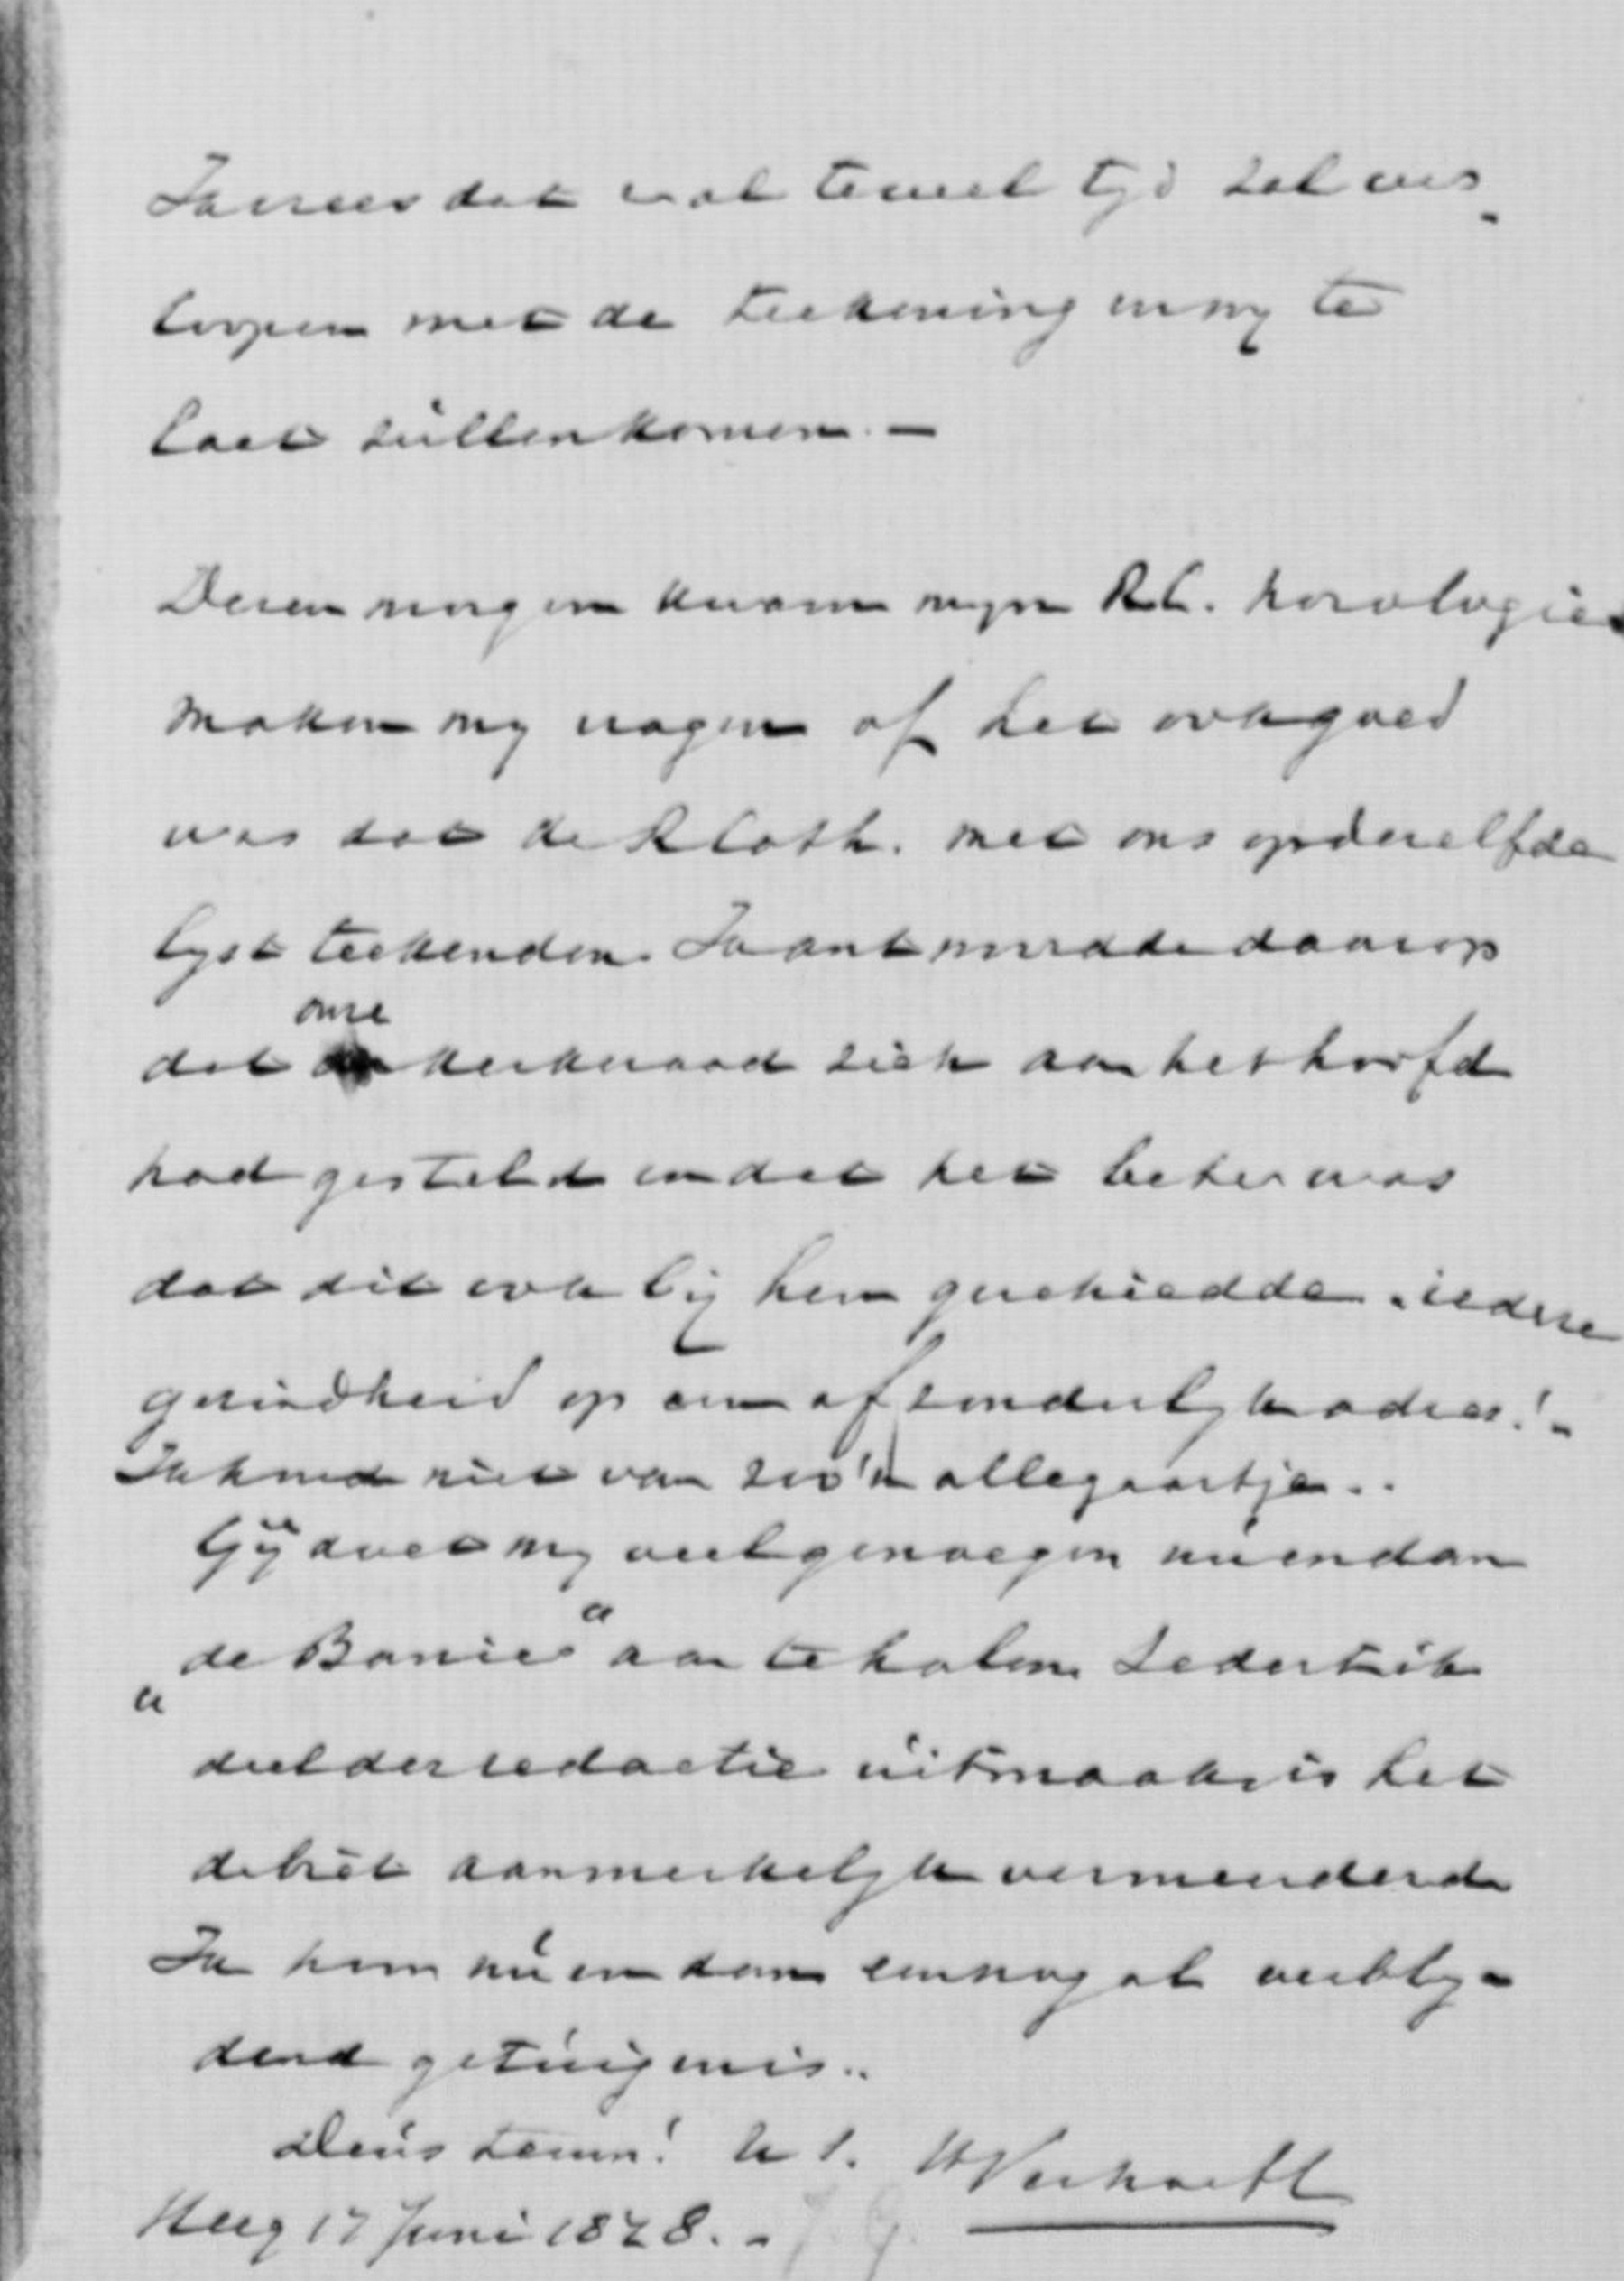 Ik vrees dat er al te veel tijd zal ver-
loopen met de teekening en wij te
laat zullen komen. —
Dezen morgen kwam mijn R.C. horologie
maker mij vragen of het ook goed
was dat de R Cath. met ons op dezelfde
lijst teekenden. Ik antwoordde daarop
dat onze kerkeraad zich aan het hoofd
had gesteld en dat het beter was
dat dit ook bij hen geschiedde. iedere
gezindheid op een afzonderlijk adres! -
Ik houd niet van zoo'n allegaartje..
Gij doet mij veel genoegen nu en dan
de Banier" aan te halen. Sedert ik
deel der redactie uitmaak is het
debiet aanmerkelijk vermeerderd
Ik kom nu en dan een nog al verblij-
dend getuigenis..
Deus tecum! tt. Verhoeff
17 Juni 1878. -